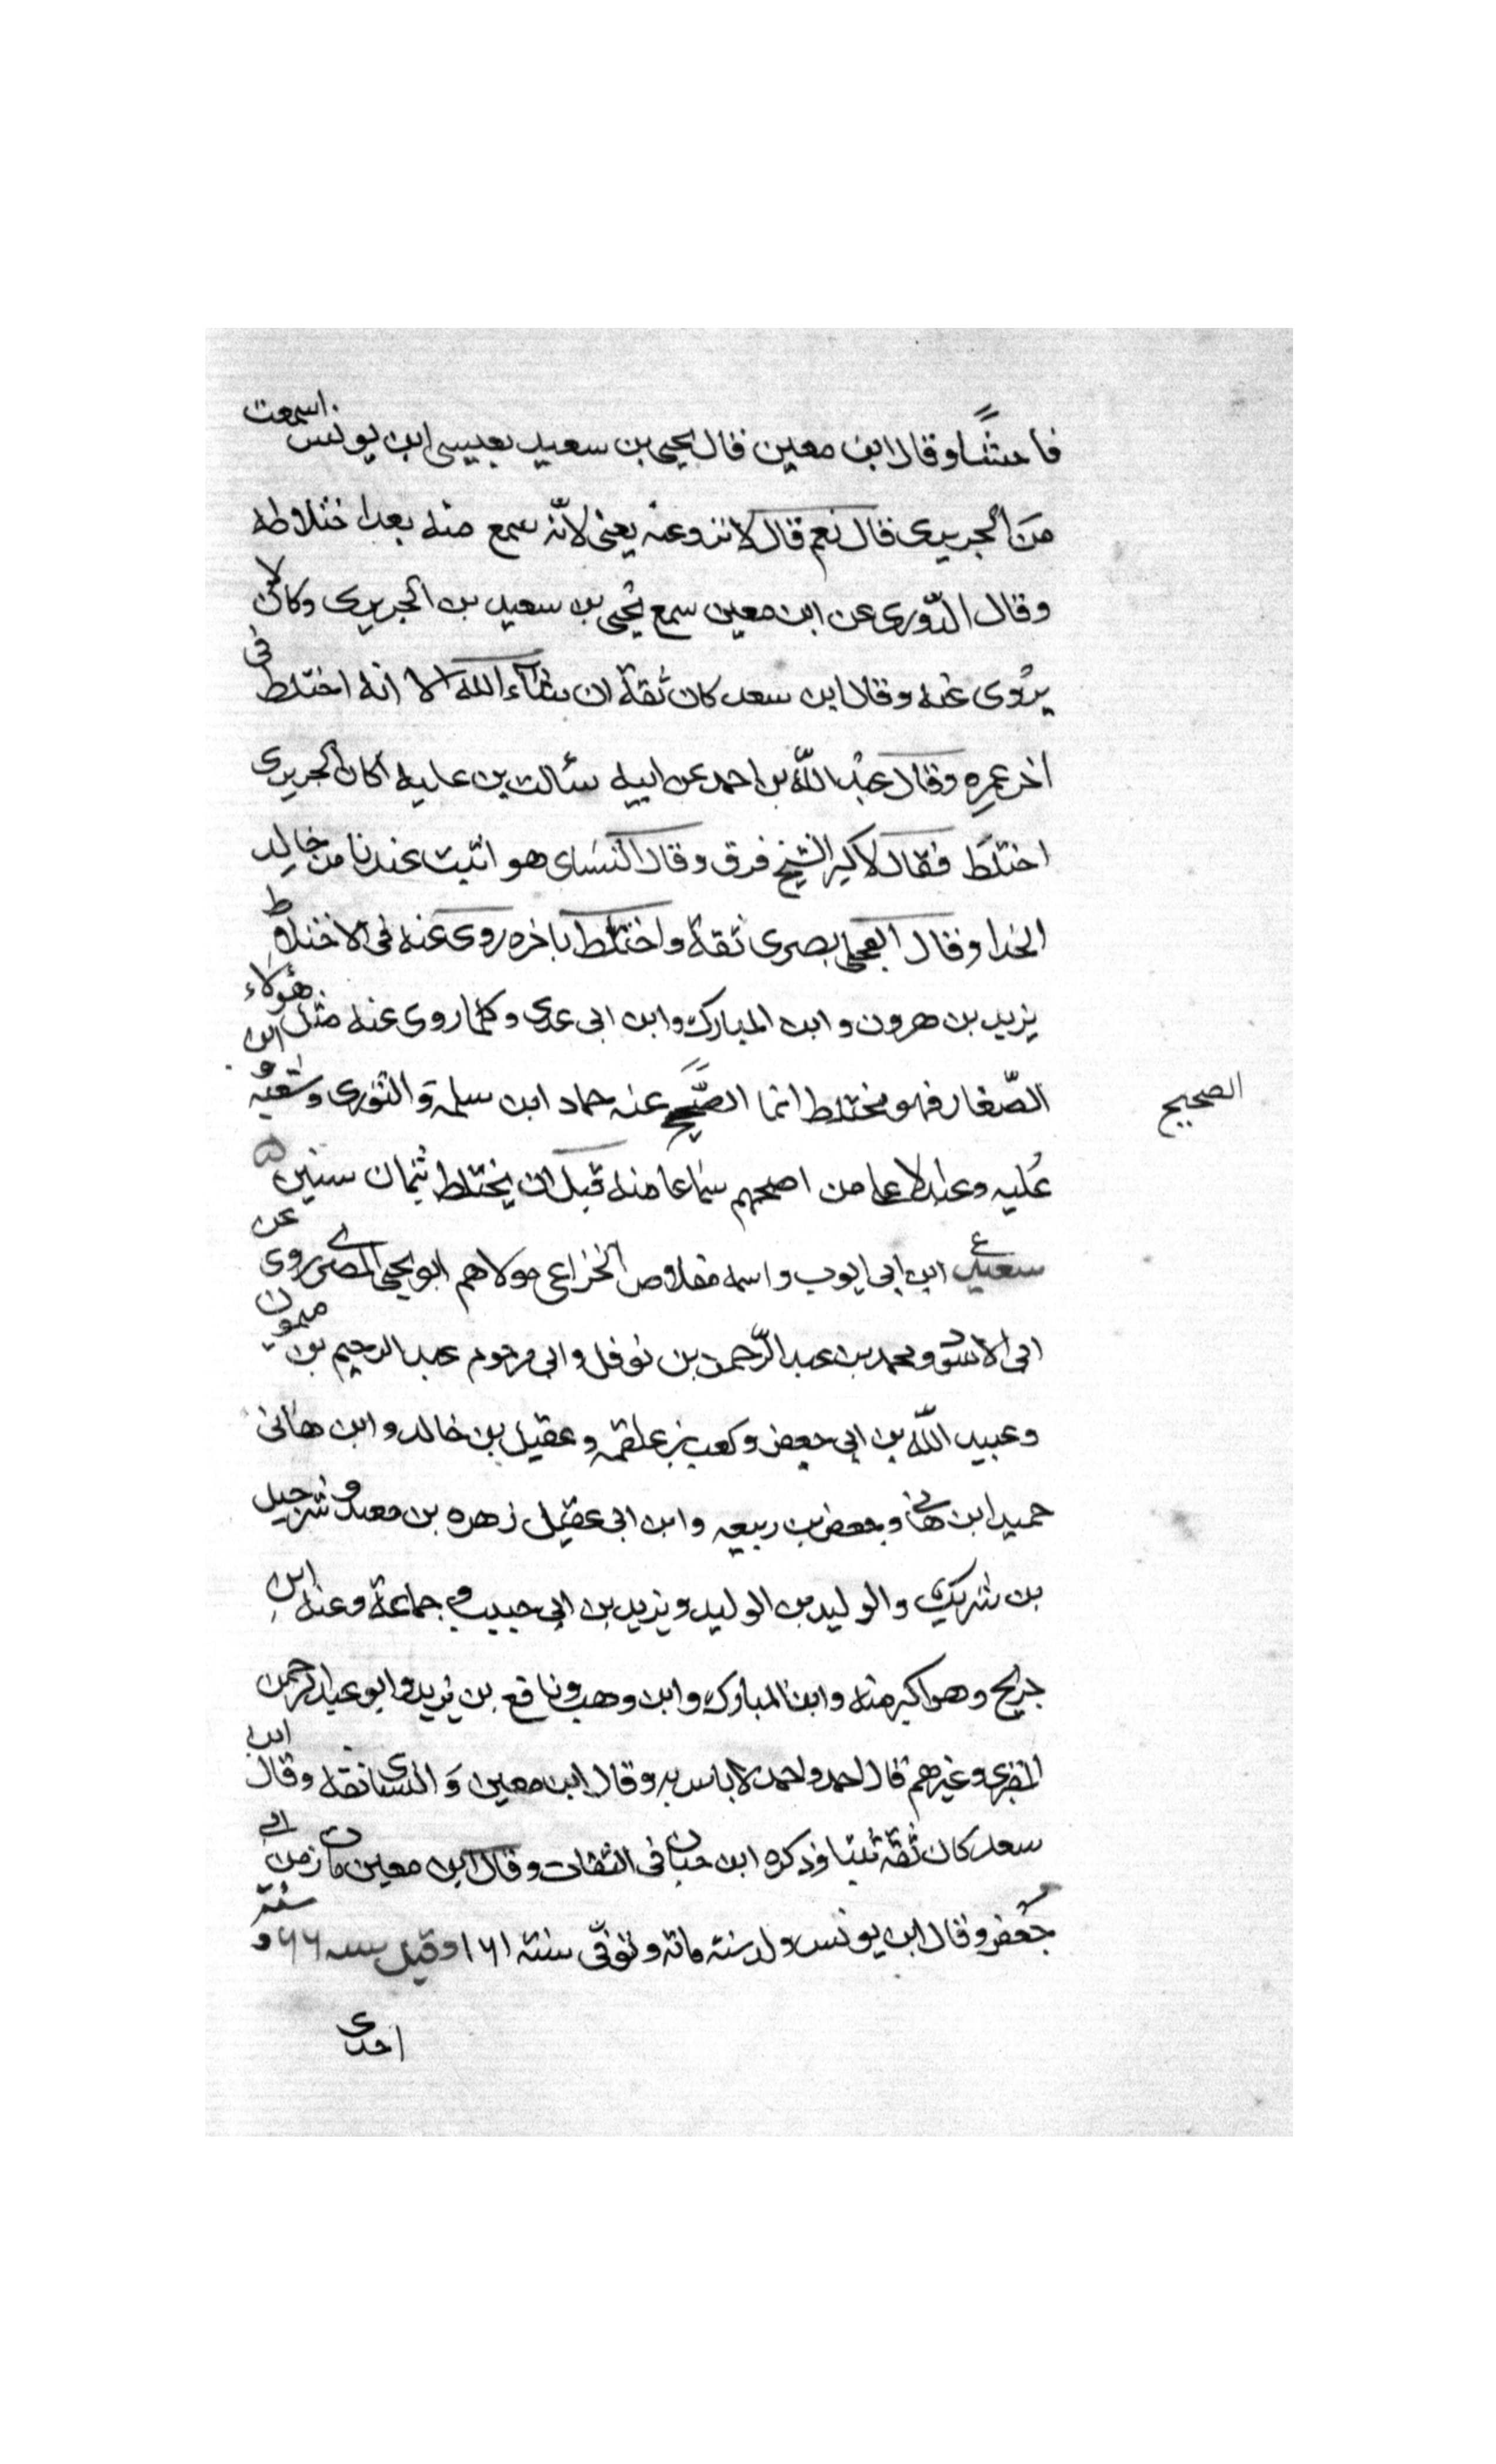 فاحشًا وقال ابن معين قال يحيى بن سعيد بعيسى ابن يونس اسمعت
من الجريرى قال نعم قال لا تروعنه يعنى لانّه سمع منه بعد اختلاطه
وقال الدّورى عن ابن معين سمع يحيى بن سعيد بن الجريرى وكان لا
يرُوى عنه وقال ابن سعد كان ثقة ان شآء الله الا انه اختلط فى
اخر عمره وقال عبد اللّه بن احمد عن ابيه سألت بن عليه اكان الجريرى
اختلط فقال لا كبر الشيخ فرق وقال النسَاى هو اثبت عندنا من خالد
الخدا وقال العجلى بصرى ثقة واختلط باخره روى عنه فى الاختلاط
يزيد بن هرون وابن المبارك وابن ابى عدى وكلما روى عنه مثل هؤلاء
الصّغار فهو مختلط انما الصَّحيح عنه حماد ابن سلمة والثورى وشعبه وابن
الصحيح
عُليه وعبد الاعلى من اصحهم سماعا منه قبل ان يختلط بثمان سنين
سعيد ابن ابى ايوب واسمه مقلاص الخزاعى مولاهم ابو يحيى المصرى روى عن
ابى الاسود ومحمد بن عبد الرّحمن بن نوفل وابى مرحوم عبد الرحيم بن ميمون
وعبيد اللّه بن ابى جعفر وكعب بن علقمه وعقيل بن خالد وابن هانى
حميد ابن هانى وجعفر بن ربيعه وابن ابى عقيل زهره بن معبد وشرحبيل
بن شريك والوليد بن الوليد ويزيد بن ابى حبيب فى جماعة وعنه ابن
جريح وهو اكبر منه وابن المبارك وابن وهب ونافع بن يزيد وابو عبد الرحمن
المقرى وغيرهم قال احمد واحمد لا باس به وقال ابن معين وَ النسائى ثقه وقال ابن
سعد كان ثقة ثبتا وذكره ابن حبان فى الثقات وقال ابن معين مات زمن ابى
جعفر وقال ابن يونس ولد سنة مائه وتوفّى سنة ١٦١ وقيل سنه ٦٦ و سنة
احدى